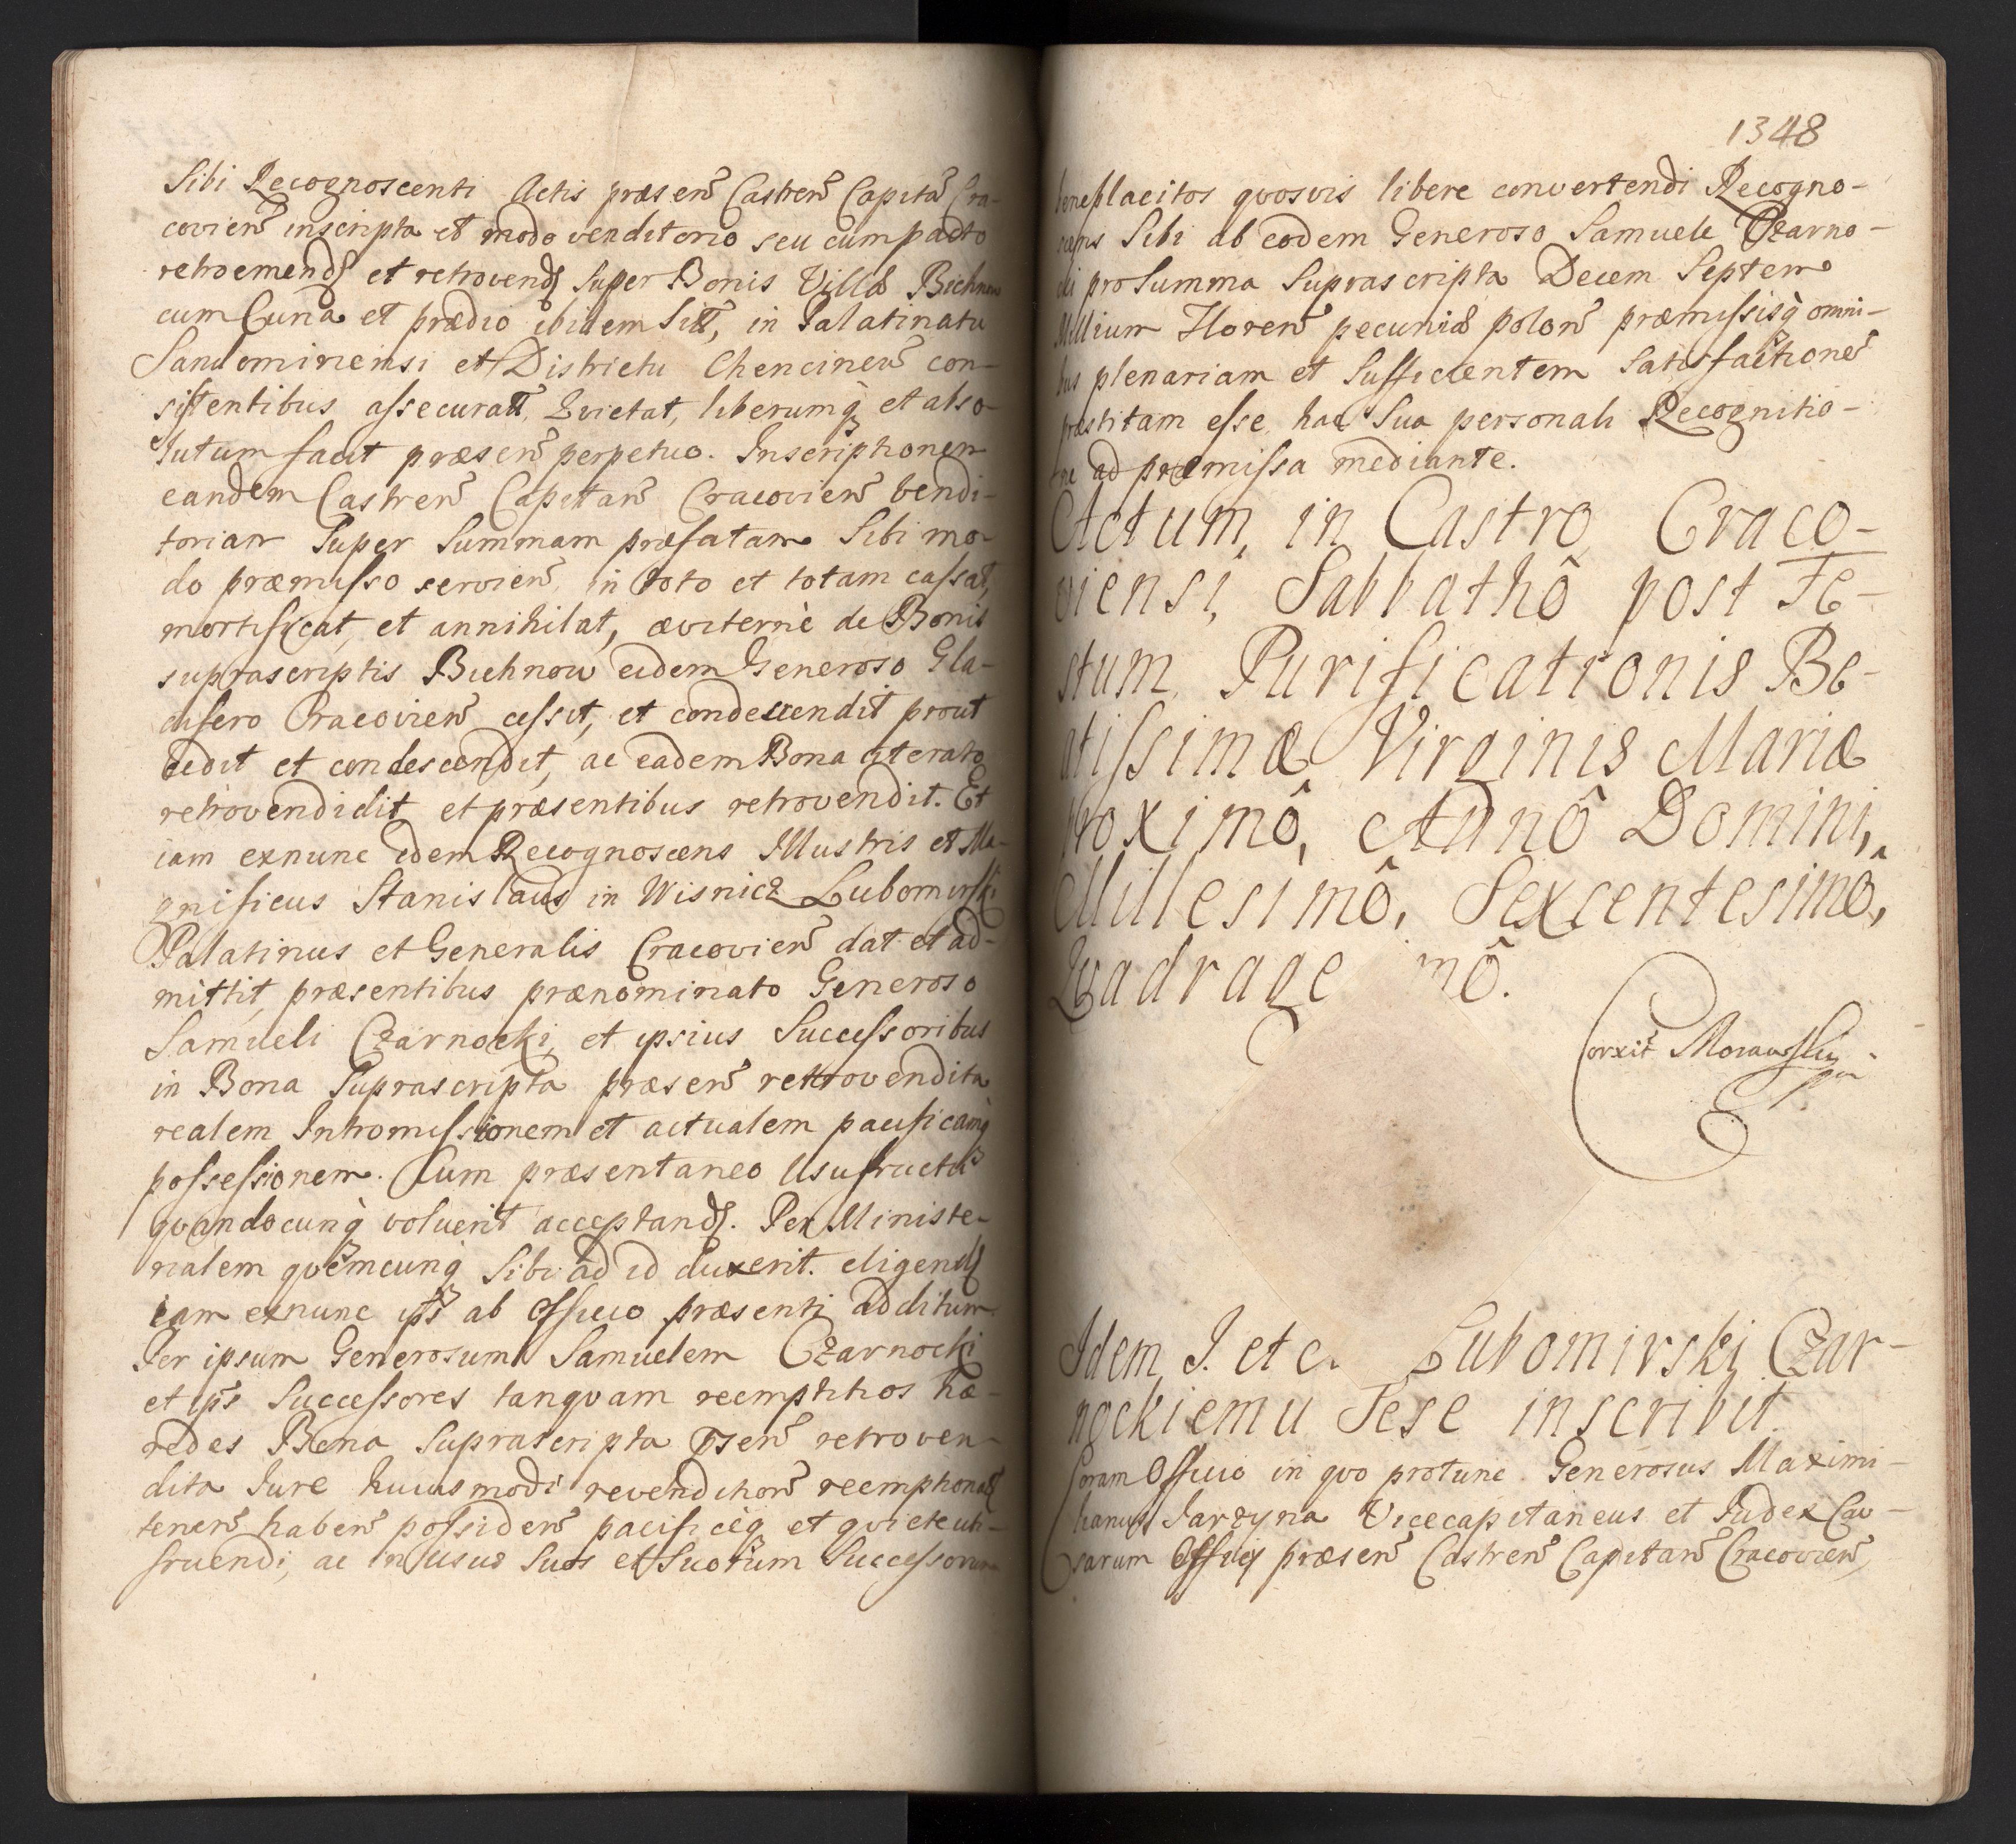 Sibi Recognoscenti Actis præsen̄ Castren̄ Capitā Cra-
covien̄ inscripta et modo venditorio seu cum pacto
retroemendj et retrovendj Super Bonis Villæ Bichnow
cum Curia et prædio ibidem Sitt, in Palatinatu
Sandomiriensi et Districtu Chencinen̄ con-
sistentibus assecuratt, Quietat, liberumq̀ et abso-
lutum facit præsen̄ perpetuo. Inscriptionem
eandem Castren̄ Capitan̄ Cracovien̄ vendi-
toriam Super Summam præfatam Sibi mo-
do præmisso servien̄ in toto et totam cassat,
mortificat, et annihilat, æviternè de Bonis
suprascriptis Bichnow eidem Generoso Gla-
difero Cracovien̄ cessit, et condescendit prout
cedit et condescendit, ac eadem Bona iterato
retrovendidit et præsentibus retrovendit. Et
iam exnunc idem Recognoscens Illustris et Ma-
gnificus Stanislaus in Wisnicz Lubomirski
Palatinus et Generalis Cracovien̄ dat et ad-
mittit, præsentibus prænominato Generoso
Samueli Czarnocki, et ipsius Successoribus
in Bona Suprascripta præsen̄ retrovendita
realem Intromissionem et actualem pacificamq̀
possessionem. Cum præsentaneo Usufructu
quandocunq̀ voluerit acceptandj. Per Ministe-
rialem quemcunq̀ Sibi ad id duxerit eligendj
iam exnunc ip̄s ab Officio præsenti additum
Per ipsum Generosum Samuelem Czarnocki
et ip̄s Successores tanquam reemptitios hæ-
redes Bona Suprascripta p̄sen̄ retroven-
dita Iure huiusmodi revenditor̄ reemptional
tenen̄ haben̄ possiden̄ pacificèq̀ et quiete uti-
fruendi, ac in usus Suos et Suorum Successorum
1348
beneplacitos quosvis libere convertendi Recogno-
scens Sibi ab eodem Generoso Samuele Czarno-
cki pro Summa Suprascripta Decem Septem
Millium Floren̄ pecuniæ polon̄ præmissisq̀ omni-
bus plenariam et Sufficientem Satisfactionē
præstitam esse, hac Sua personali Recognitio-
ne ad præmissa mediante.
Actum, in Castro Craco-
viensi, Sabbathô post Fe-
stum Purificationis Be-
atissimæ Virginis Mariæ
proximô, Annô Domini,
Millesimô, Sexcentesimô,
Quadrage mô.
Corxit Morawsky
Idem I. et c. Lubomirski Czar-
nockiemu Sese inscribit.
Coram Officio in quo protunc Generosus Maximi-
lianus Jarzyna Vicecapitaneus et Iudex Cau-
sarum Officij præsen̄ Castren̄ Capitan̄ Cracovien̄